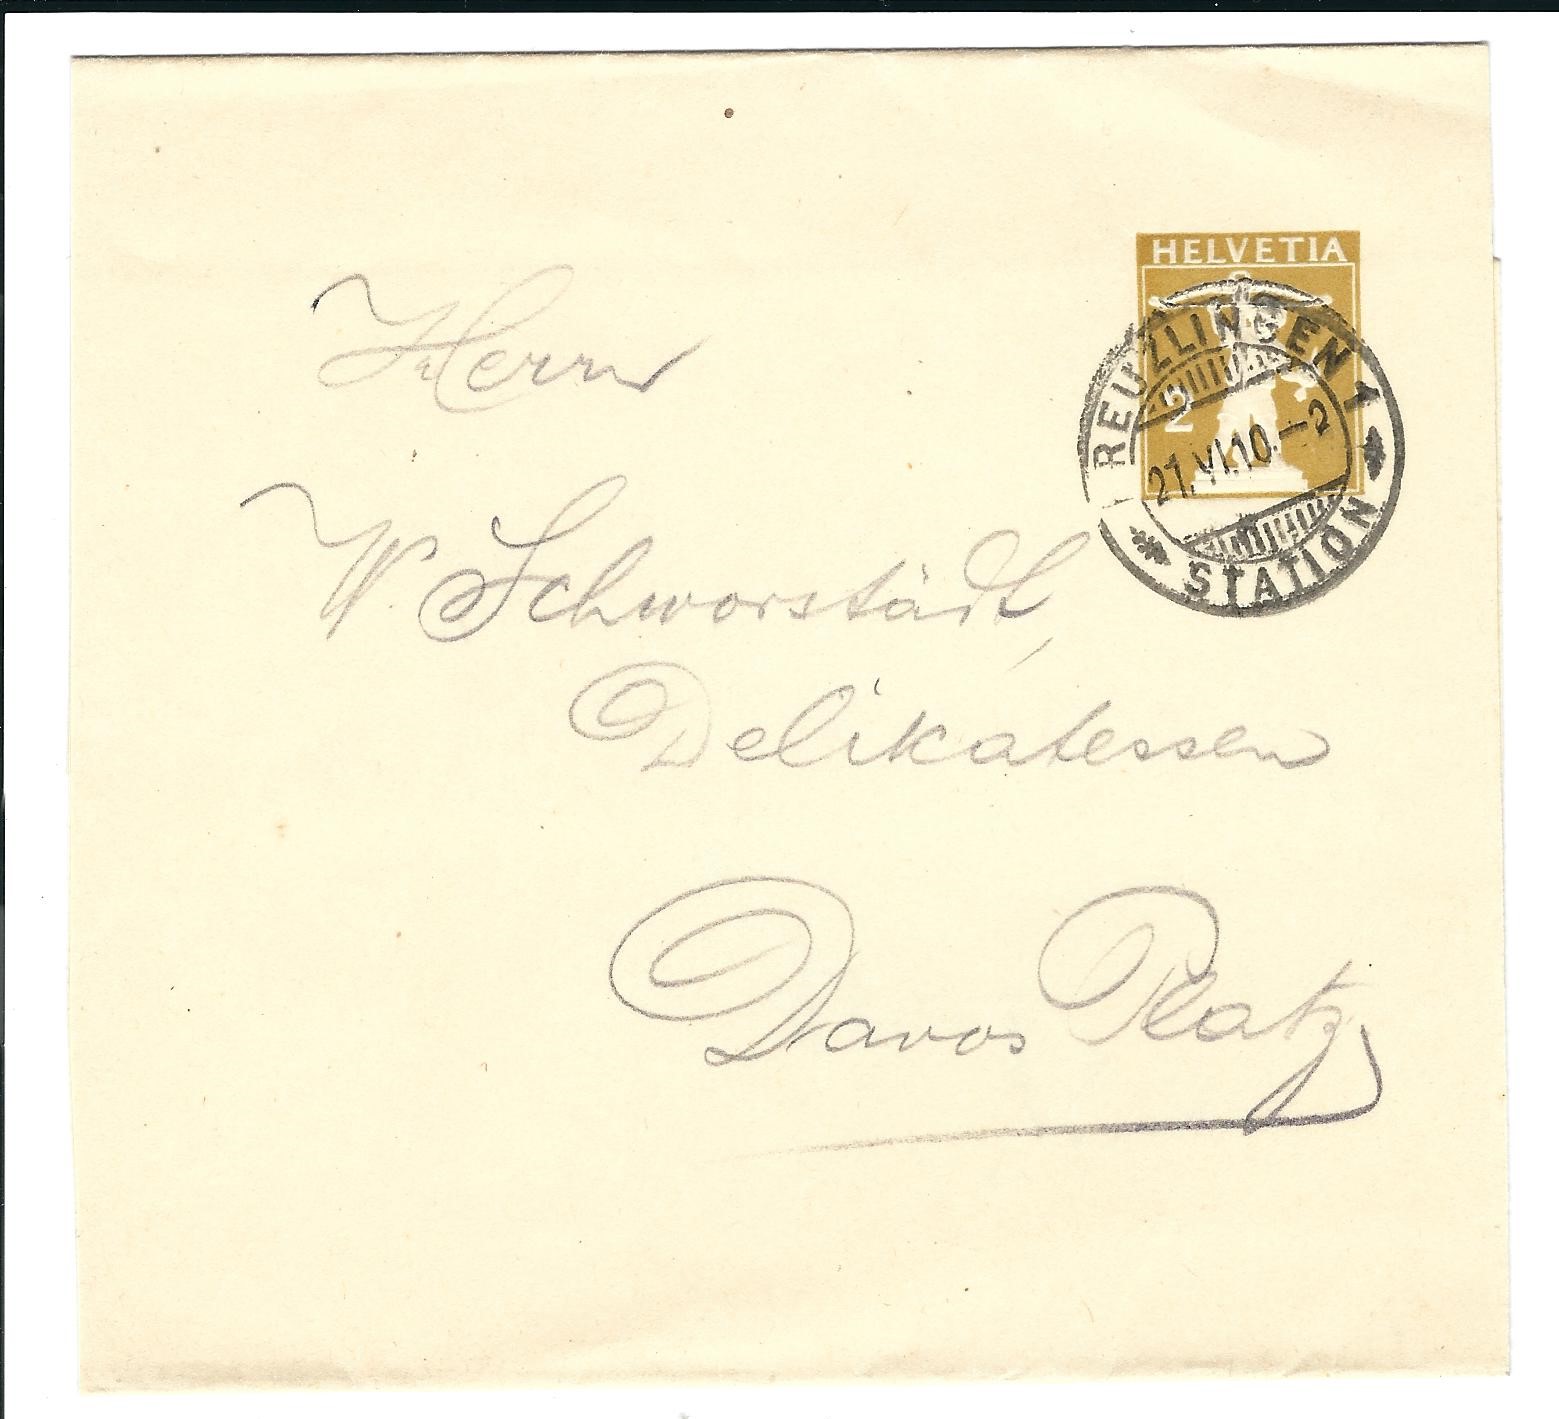 HELVETIA
2
REUZLINGEN 1
27.VI.10.–2
STATION
Herrn
W. Schworstädt,
Delikatessen
Davos Platz